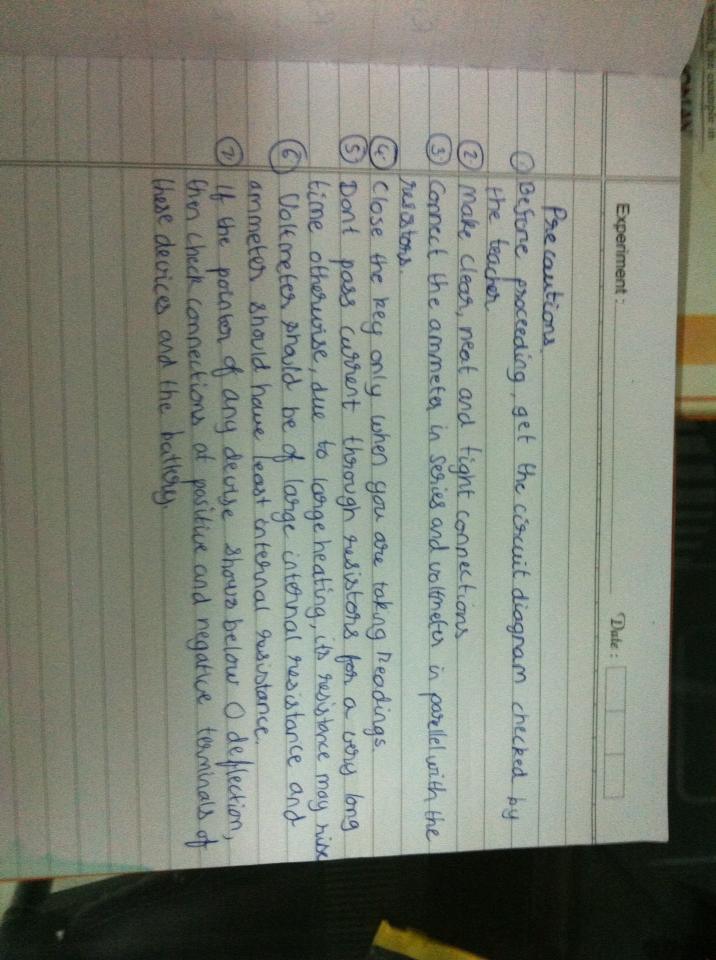 Experiment :
Date :
Precautions.
① Before proceeding, get the circuit diagram checked by
the teacher
② Make clear, neat and tight connections
③ Connect the ammeter in series and voltmeter in parellel with the
resistors.
④ Close the key only when you are taking readings.
⑤ Dont pass current through resistors for a very long
time otherwise, due to large heating, its resistance may rise
⑥ Voltmeter should be of large internal resistance and
ammeter should have least internal resistance.
⑦ If the pointer of any devise shows below 0 deflection,
then check connections at positive and negative terminals of
these devices and the battery